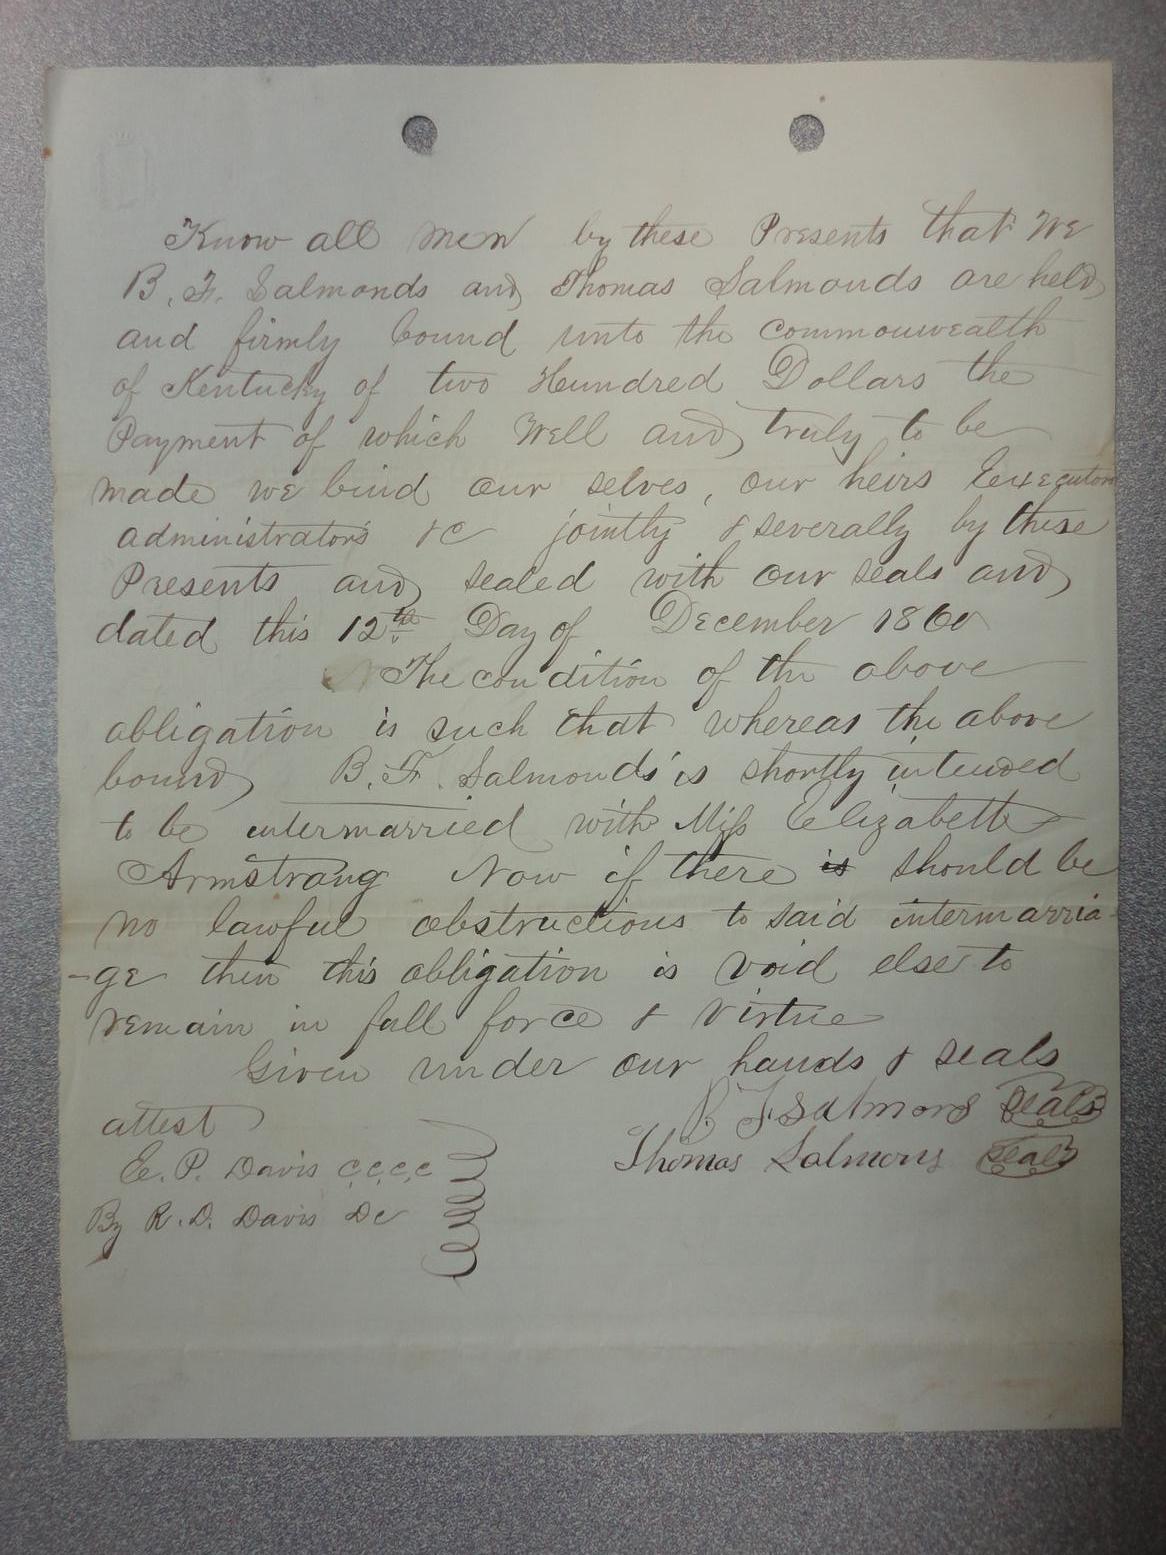 Know all men by these Presents that We
B. F. Salmonds and Thomas Salmonds are held
and firmly bound unto the commonwealth
of Kentucky of two Hundred Dollars the
Payment of which Well and truly to be
made we bind our selves, our heirs Executors
administrators &c jointly & severally by these
Presents and sealed with our seals and
dated this 12th Day of December 1860
The condition of the above
obligation is such that whereas the above
bound B. F. Salmonds is shortly intended
to be intermarried with Miss Elizabeth
Armstrang Now if there is should be
no lawful obstructions to said intermarria-
-ge then this obligation is void else to
remain in full force & virtue
Given under our hands & seals
attest B. F. Salmons seals
E. P. Davis c.c.c.c Thomas Salmons seals
By R. D. Davis Dc